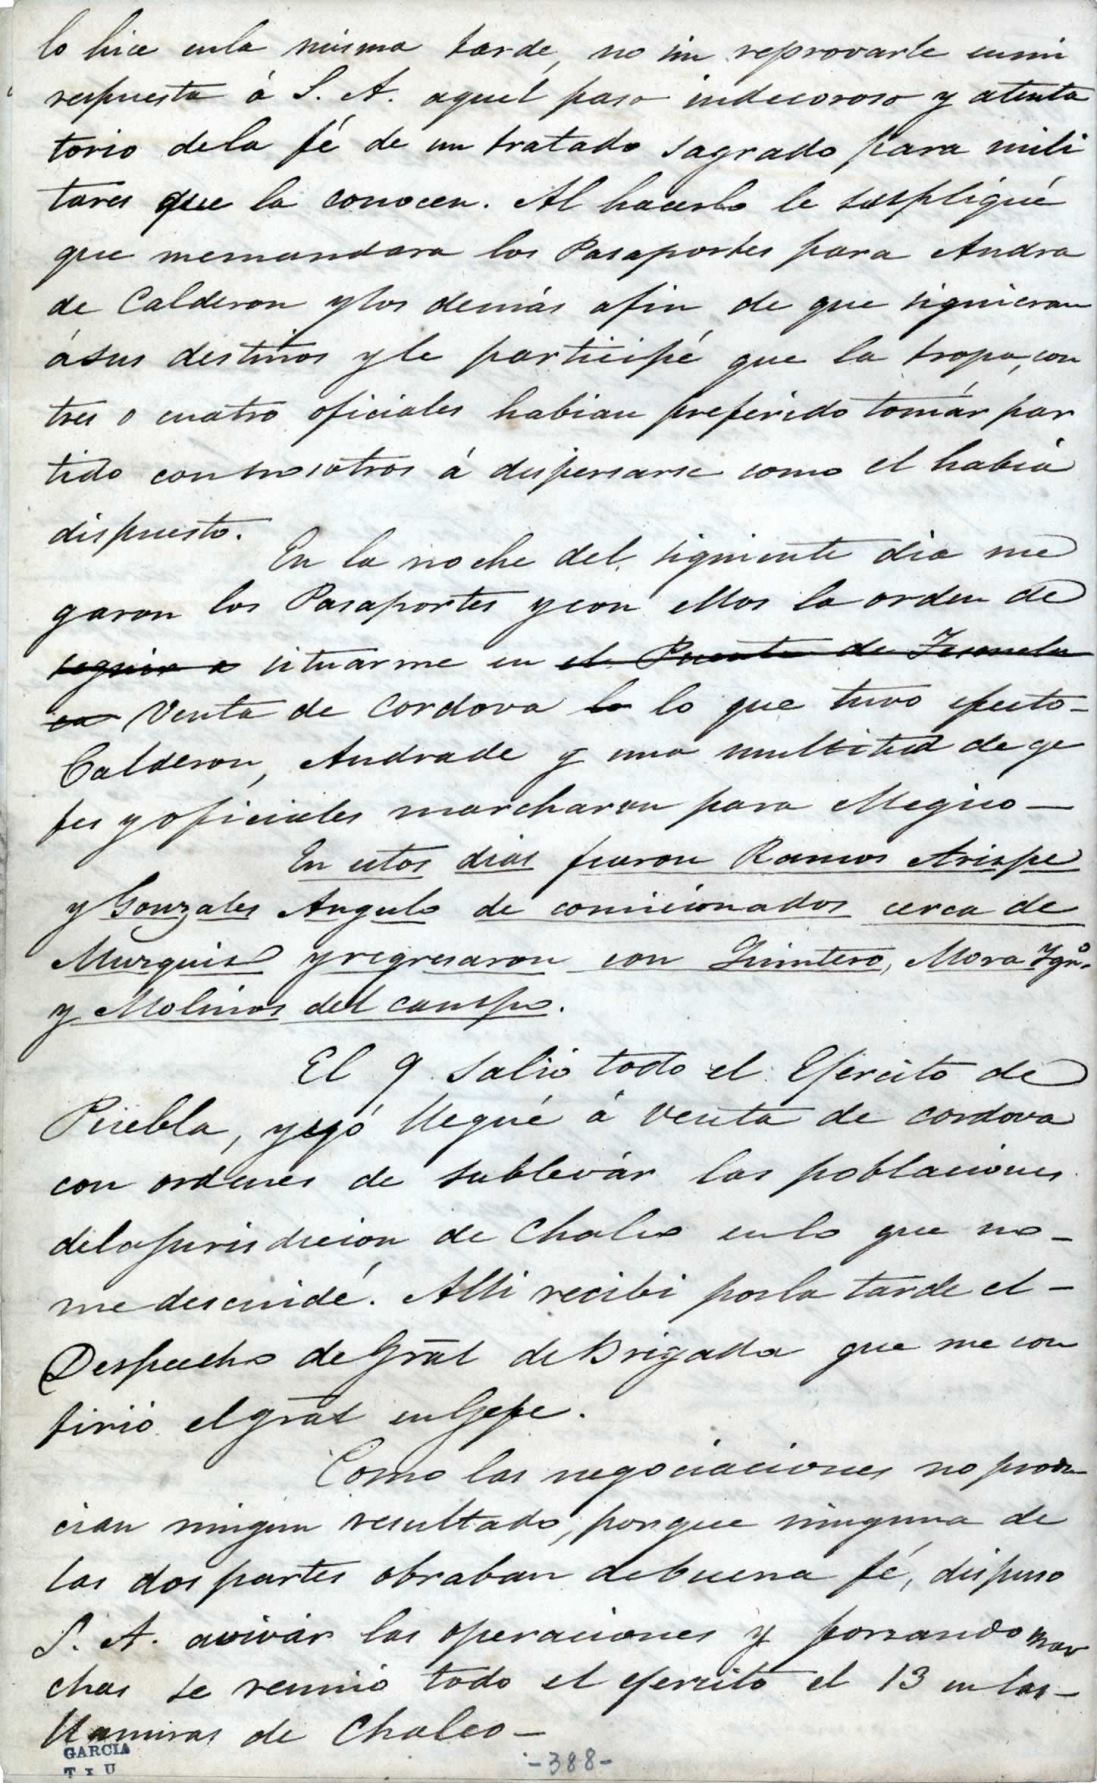 lo hice enla misma tarde, no sin reprovarle enmi
respuesta á S. A. aquel paso indecoroso y atenta
torio dela fé de un tratado sagrado para mili
tares que la conocen. Al hacerlo le supliqué
que memandara los Pasaportes para Andra
de Calderon ylos demás afin de que siguieran
ásus destinos yle participé que la tropa, con
tres o cuatro oficiales habian preferido tomár par
tido con nosotros á dispersarse como el habiá
dispuesto.
En la noche del siguiente dia me
garon los Pasaportes ycon ellos la orden de
seguir a situarme en el Puente de
en Venta de Cordova lo lo que tuvo efecto-
Calderon, Andrade y una multitud de ge
fes yoficiales marcharon para Megico-
En estos dias fueron Ramos Arispe
y Gonzales Angulo de comicionados cerca de
Murguis yregresaron con Quintero, Mora Ygnº
y Molinos del campo.
El 9 salió todo el Ejercito de
Puebla, yyó llegué á Venta de cordova
con ordenes de sublevár las poblaciones
delajurisdicion de Chalco enlo que no-
me descuidé. Alli recibi porla tarde el-
Despacho de Gral de Brigada que me con
firió el gral en Gefe.
Como las negociaciones no produ
cian ningun resultado, porque ninguna de
las dos partes obraban debuena fé, dispuso
S. A. avivár las operaciones y forzando mar
chas se reunió todo el ejercito el 13 en las-
llanuras de Chalco-
GARCIA
-388-